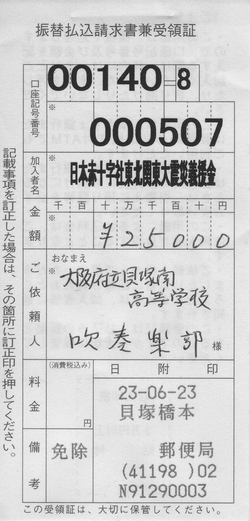 振替払込請求書兼受領証
口座記号番号
00140-8
000507
加入者名
日本赤十字社東北関東大震災義援金
金額
千百十万千百十円
¥25000
ご依頼人
おなまえ
大阪府立貝塚南
高等学校
吹奏楽部 様
料金
(消費税込み)
円
日附印
23-06-23
貝塚橋本
備考
免除
郵便局
(41198)02
N91290003
この受領証は、大切に保管してください。
記載事項を訂正した場合は、その箇所に訂正印を押してください。